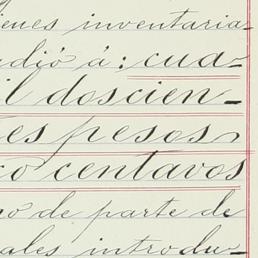 ienes inventaria-
udió á: cua-
il doscien-
es pesos
co centavos
de parte de
ales introdu-